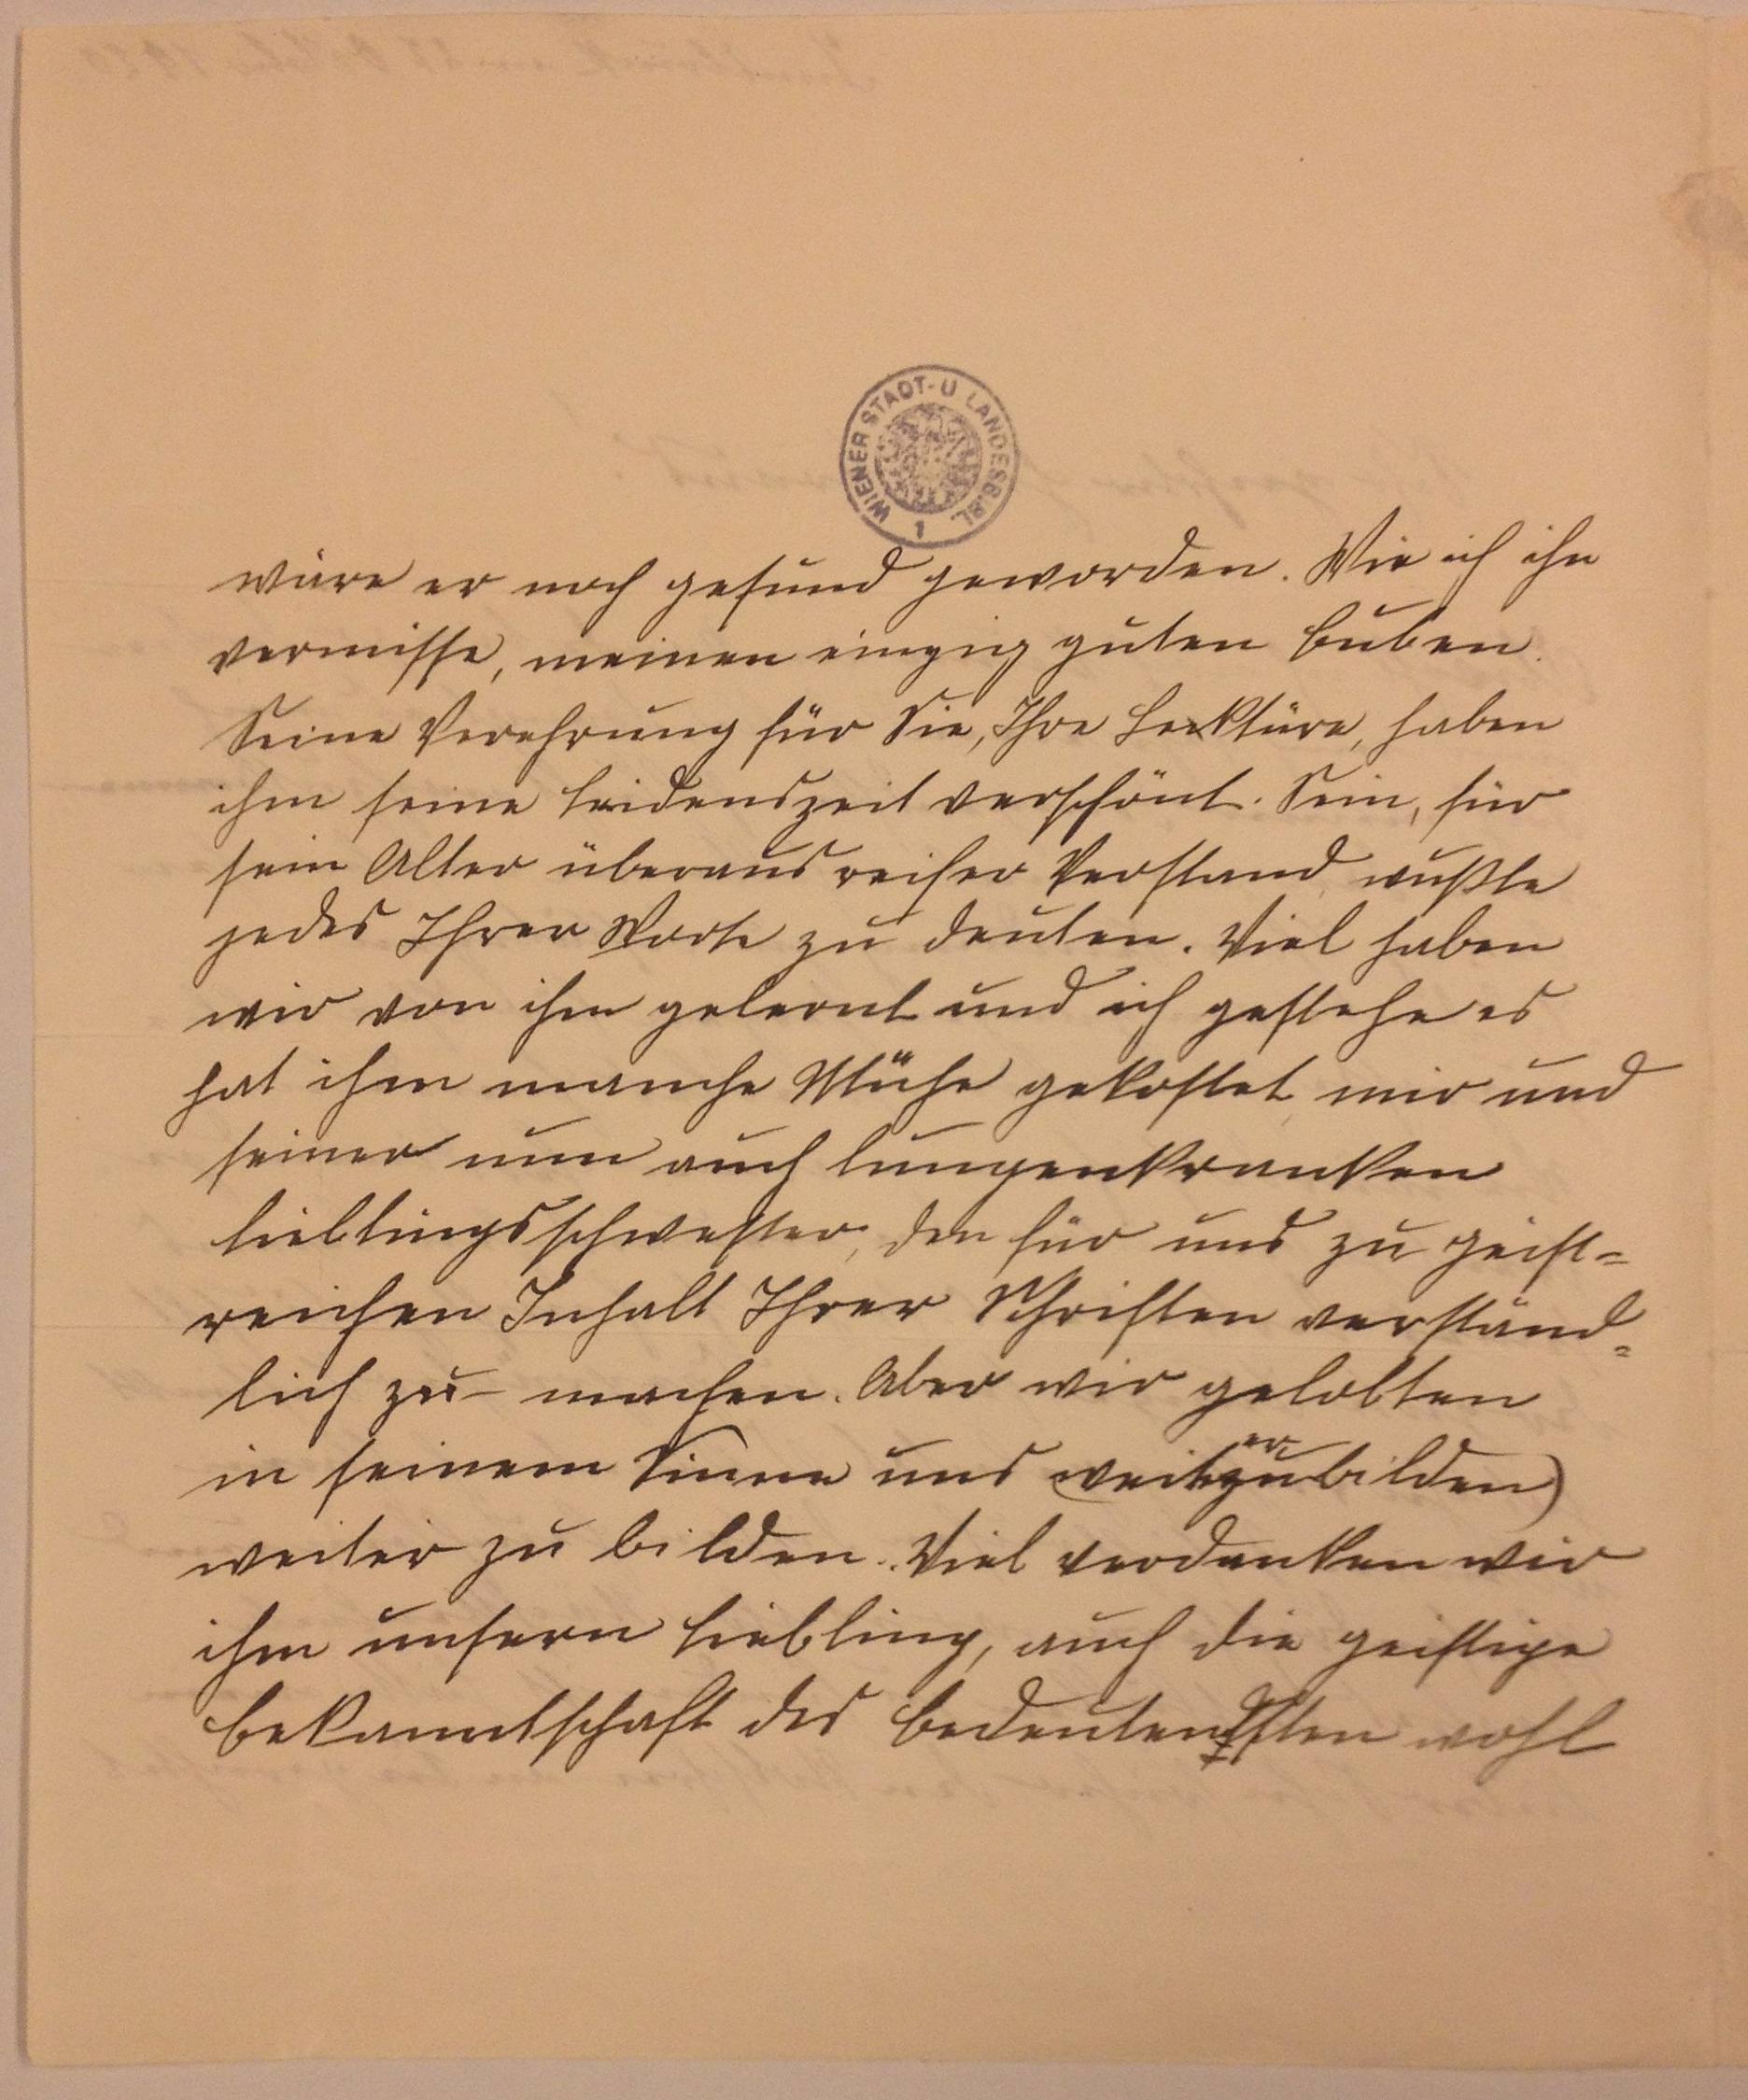 WIENER STADT- U LANDESBIBL.
1
wäre er noch gesund geworden. Wie ich ihn
vermisse, meinen einzig guten Buben.
Seine Verehrung für Sie, Ihre Lektüre, haben
ihm seine Leidenszeit verschönt. Sein, für
sein Alter überaus reifer Verstand wußte
jedes Ihrer Worte zu deuten. Viel haben
wir von ihm gelernt und ich gestehe es
hat ihm manche Mühe gekostet mir und
seiner nun auch lungenkranken
Lieblingsschwester, den für uns zu geist=
reichen Inhalt Ihrer Schriften verständ=
lich zu machen. Aber wir gelobten
in seinem Sinne uns (weiterzubilden)
weiter zu bilden. Viel verdanken wir
ihm unsern Liebling, auch die geistige
Bekanntschaft des bedeutendsten wohl